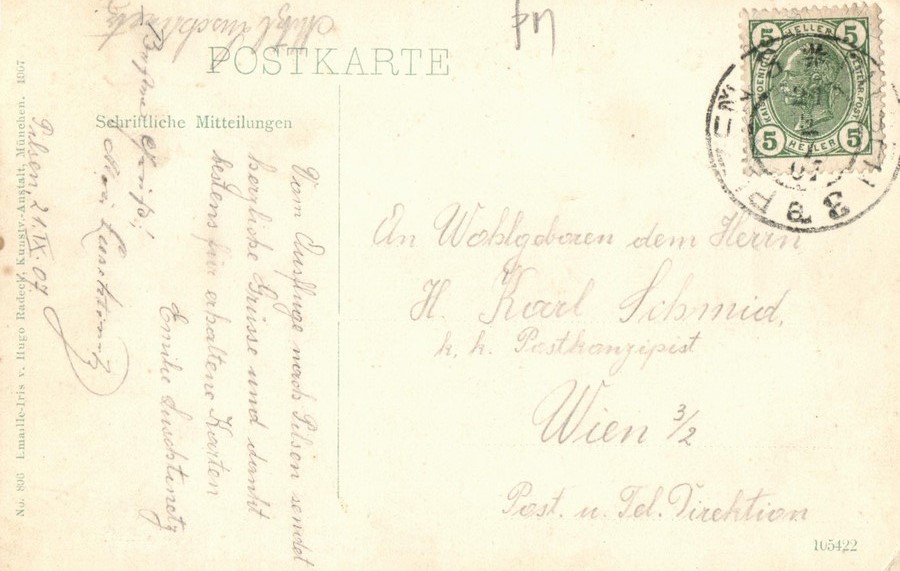 POSTKARTE
Schriftliche Mitteilungen
5 HELLER 5
5 HELLER 5
An Wohlgeboren dem Herrn
H. Karl Schmid,
k. k. Postkanzipist
Wien 3/2
Post. u. Tel. Direktion
105422
Vom Ausfluge nach Pilsen sendet
herzliche Grüsse und dankt
bestens für erhaltene Karten
Emilie Luschtinetz
Pilsen, 21./IX. 07.
No. 806 Emaille-Iris v. Hugo Radeck, Kunstv.-Anstalt, München. 1907